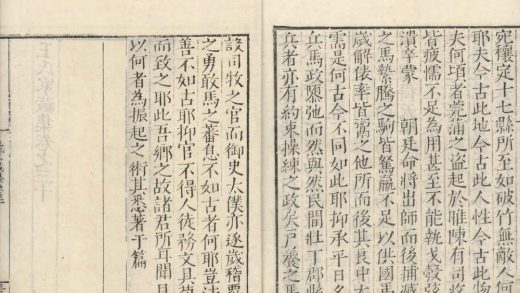 宛穰定十七縣所至如破竹無敵人何
耶夫今古此地今古此人性今古此物
夫何頃者莞蒲之盜起於睢陳有司將
皆疲懦不足為用甚至不能執戈彀弦
潰幸蒙 朝廷命將出師而後捕滅
之馬縶騰之駒皆駑羸不足以供國馬
歲解俵率皆鬻之他所而後其良中大
需是何古今不同如此耶抑承平日
兵馬政隳弛而然與然民間壯丁郡縣
兵者亦有約束操練之政矣戶養之馬
設司牧之官而御史太僕亦逐歲稽
之勇敢馬之蕃息不如古者何耶豈法
善不如古耶抑官不得人徒務文具莫
而致之耶此吾鄉之故諸君所耳聞目
以何者為振起之術其悉著于篇
王氏家藏集卷之三十